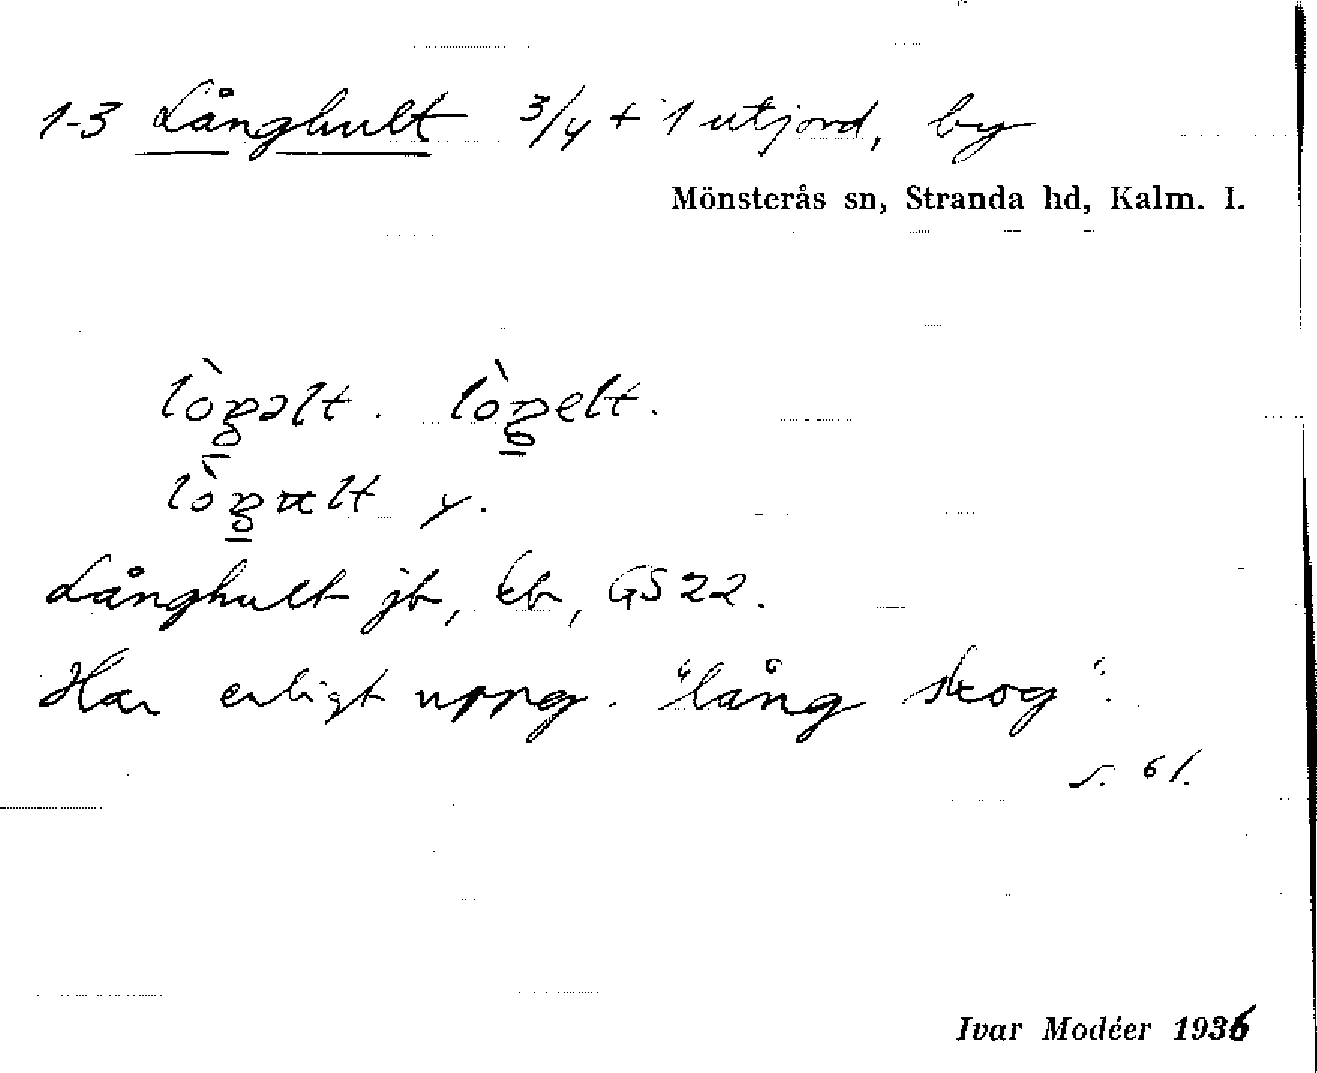 1-3 Långhult 3/4 + 1 utjord, by
Mönsterås sn, Stranda hd, Kalm. l.
Långhult jb, kb, GS 22.
Har enligt uppg. "lång skog".
s. 61.
Ivar Modéer 1936